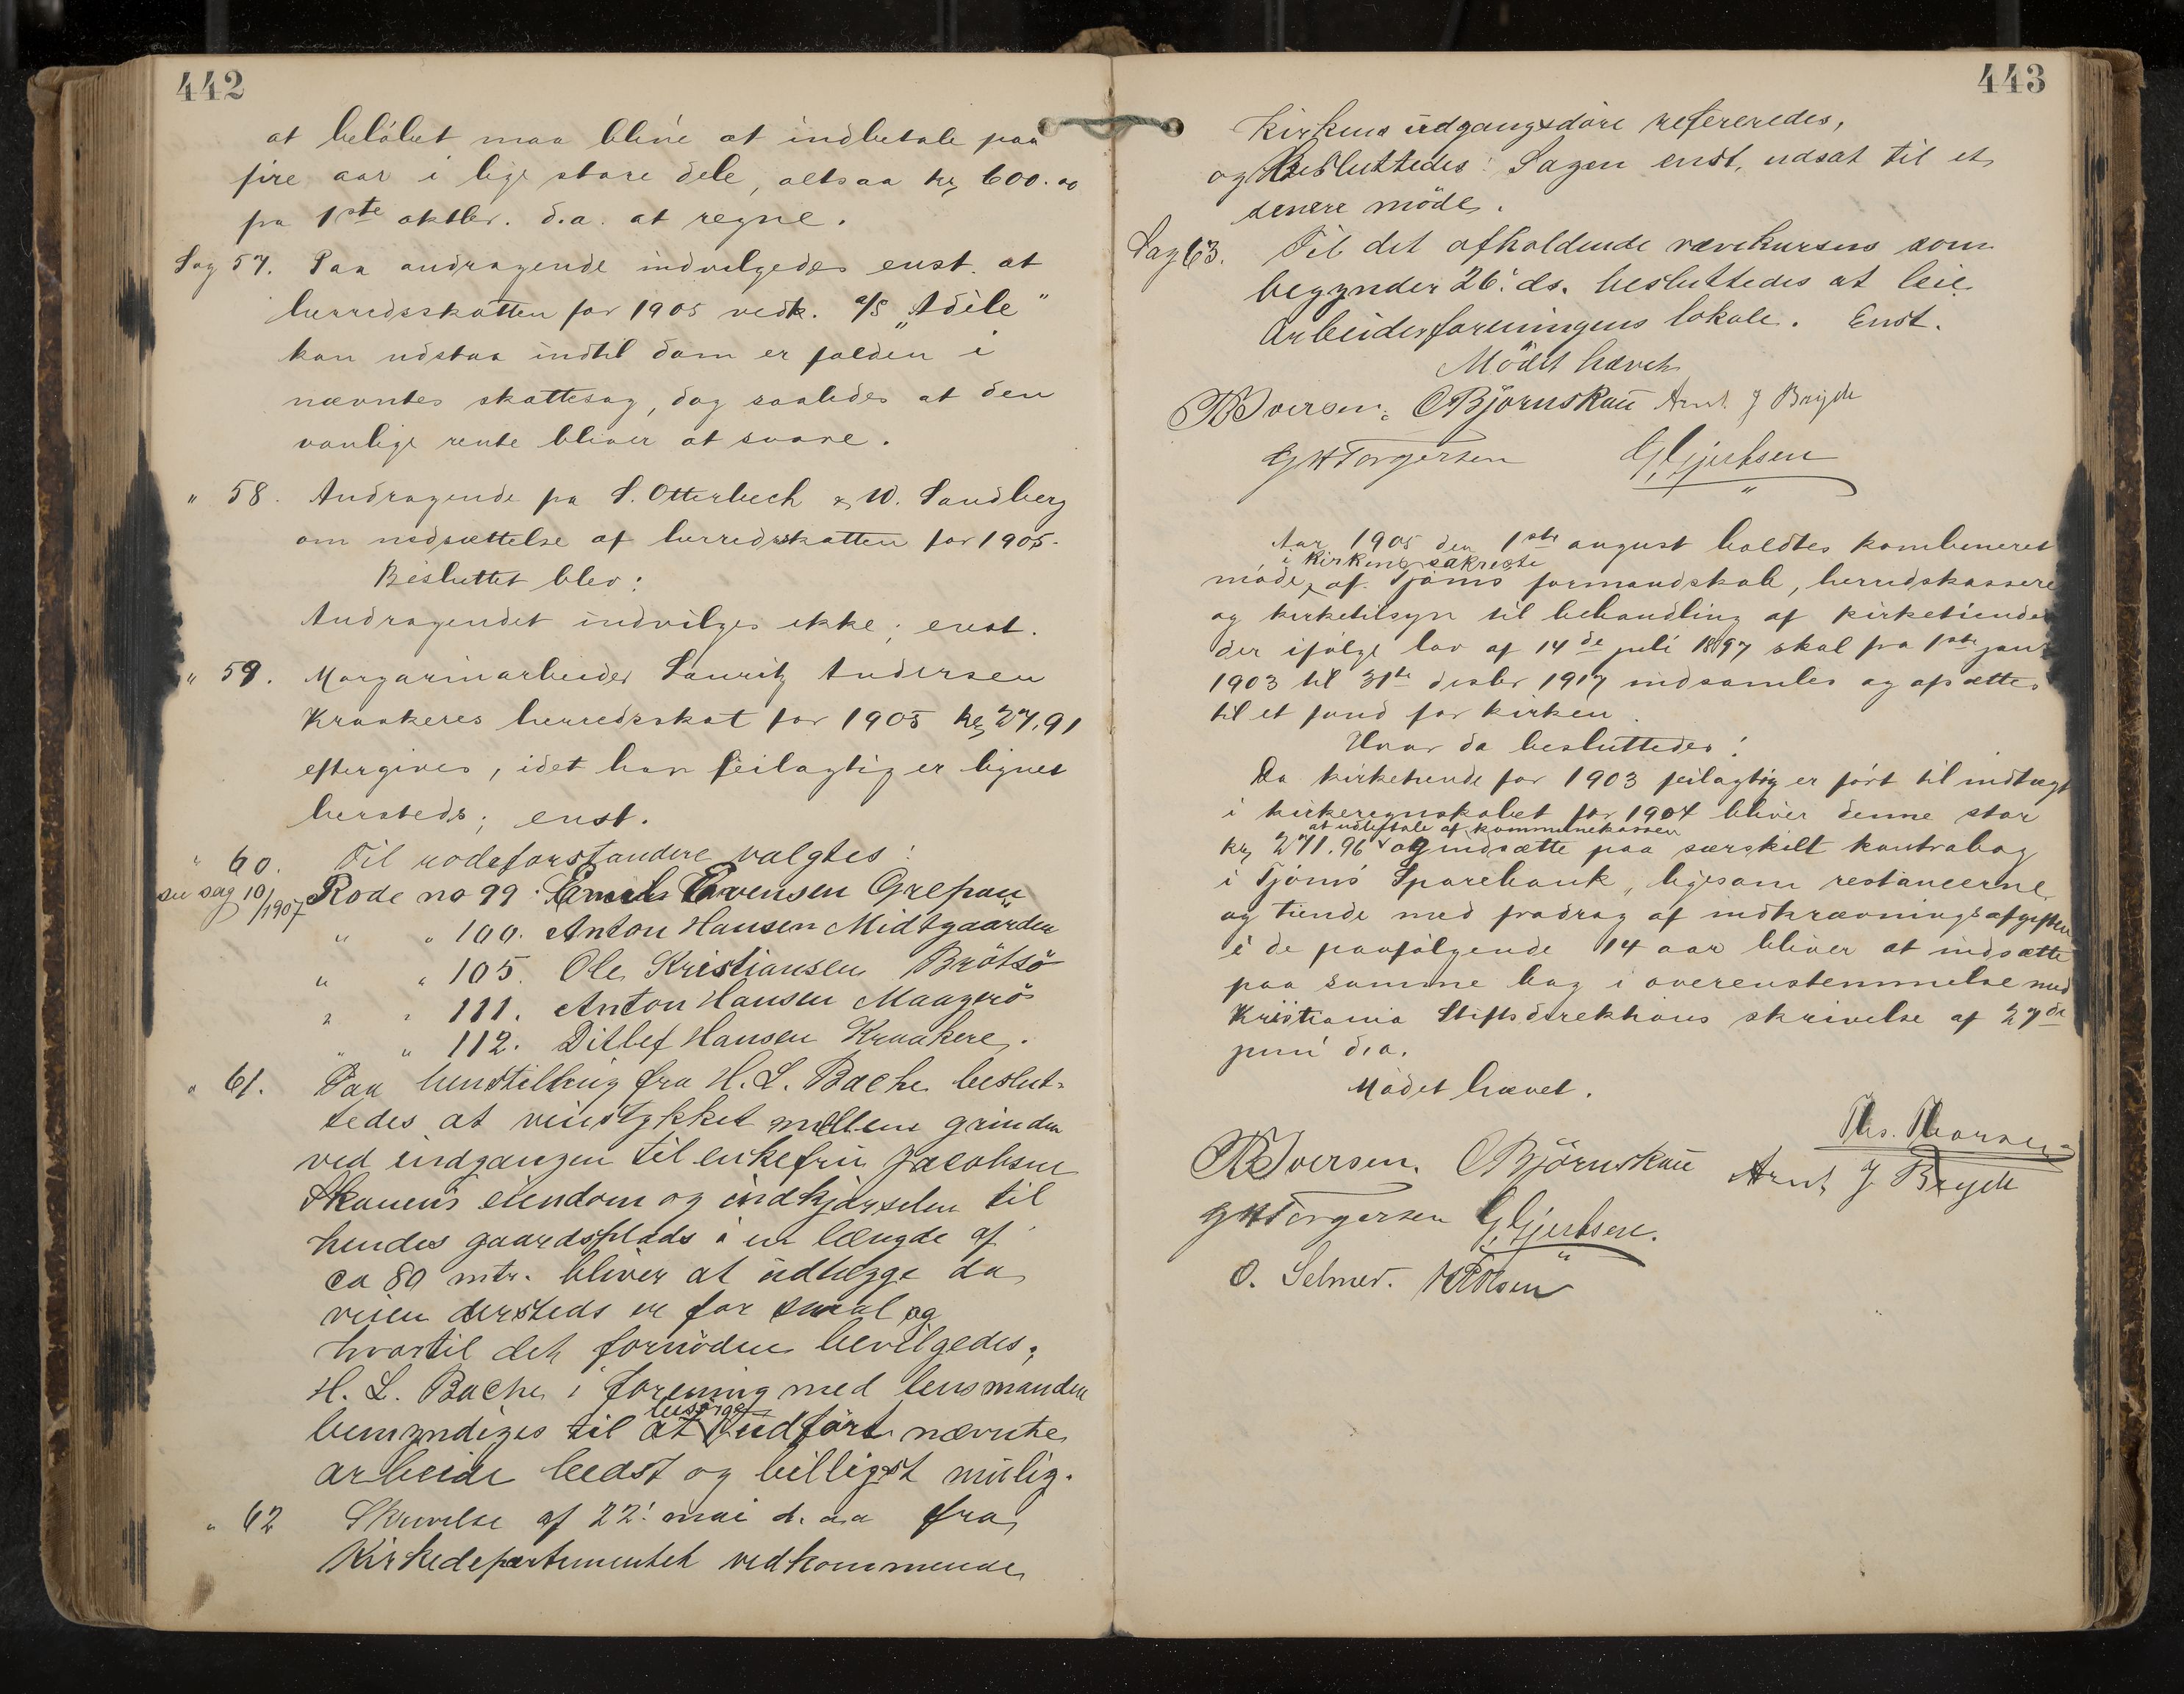 442
at beløbet maa blive at indbetale paa
fire aar i lige store dele, altsaa kr 600.00
fra 1ste oktbr. d.a. at regne.
Sag 57. Paa andragende indvilgedes enst. at
herredsskatten for 1905 vedk. a/s „Adile"
kan udstaa indtil dom er falden i
nævntes skattesag, dog saaledes at den
vanlige rente bliver at svare.
" 58. Andragende fra S. Otterbech & W. Sandberg
om nedsættelse af herredsskatten for 1905.
Besluttet blev:
Andragendet indvilges ikke; enst.
" 59. Margarinarbeider Lauritz Andersen
Kraakeres herredsskat for 1905 kr 27,91
eftergives, idet han feilagtig er lignet
hersteds; enst.
" 60. Til rodeforstandere valgtes:
se sag 10/1907 Rode no 99. Emil Evensen Grepan
" " 100. Anton Hansen Midtgaarden
" " 105. Ole Kristiansen Brøtsø
" " 111. Anton Hansen Maagerø
" " 112. Ditlef Hansen Kraakere.
" 61. Paa henstilling fra H. L. Bache beslut-
tedes at veistykket mellem grinden
ved indgangen til enkefru Jacobsen
Skauens eiendom og indkjørselen til
hendes gaardsplads i en længde af
ca 80 mtr. bliver at udlægge da
veien dersteds er for smal og
hvortil det fornødne bevilgedes;
H. L. Bache i forening med lensmanden
besørge
bemyndiges til at udført nævnte
arbeide bedst og billigst mulig.
" 62 Skrivelse af 22: mai d. aa fra
Kirkedepartementet vedkommende
443
kirkens udgangsdøre refereredes,
og besluttedes: Sagen enst. udsat til et
senere møde.
Sag 63. Til det afholdende vævekursus som
begynder 26: ds. besluttedes at leie
Arbeiderforeningens lokale. Enst.
Mødet hævet
Iversen. O Bjørnskau Arnt J Bryde
G H Torgersen G, Gjertsen
Aar 1905 den 1ste august holdtes kombineret
i kirkens sakresti
møde af Tjømø formandskab, herredskasserer
og kirketilsyn til behandling af kirketiender
der ifølge lov af 14de juli 1897 skal fra 1ste janr
1903 til 31te desbr 1917 indsamles og afsættes
til et fond for kirken.
Hvor da besluttedes:
Da kirketiende for 1903 feilagtig er ført til indtægt
i kirkeregnskabet for 1904 bliver denne stor
at udbetale af kommunekassen
kr 271.96 og indsætte paa særskilt kontrabog
i Tjømø Sparebank, ligesom restancerne
og tiende med fradrag af indkrævningsafgiften
i de paafølgende 14 aar bliver at indsætte
paa samme bog i overenstemmelse med
Kristiania Stiftsdirektions skrivelse af 27de
juni d.a.
Mødet hævet.
Ths. Thorsen
Iversen. O Bjørnskau Arnt J Bryde
G H Torgersen G, Gjertsen.
O. Selmer. Olsen